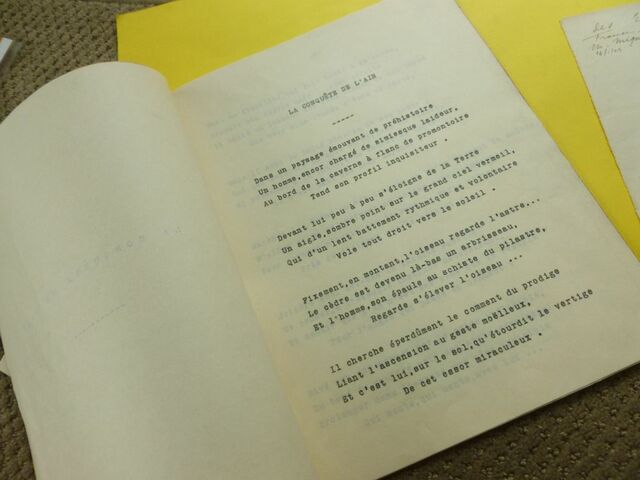 LA CONQUÊTE DE L'AIR
-----
Dans un paysage émouvant de préhistoire
Un homme,encor chargé de simiesque laideur,
Au bord de la caverne à flanc de promontoire
Tend son profil inquisiteur .
Devant lui peu à peu s'éloigne de la Terre
Un aigle,sombre point sur le grand ciel vermeil,
Qui d'un lent battement rythmique et volontaire
Vole tout droit vers le soleil .
Fixement,en montant,l'oiseau regarde l'astre...
Le cèdre est devenu là-bas un arbrisseau,
Et l'homme,son épaule au schiste du pilastre,
Regarde s'élever l'oiseau ...
Il cherche éperdûment le comment du prodige
Liant l'ascension au geste moëlleux,
Et c'est lui,sur le sol,qu'étourdit le vertige
De cet essor miraculeux .